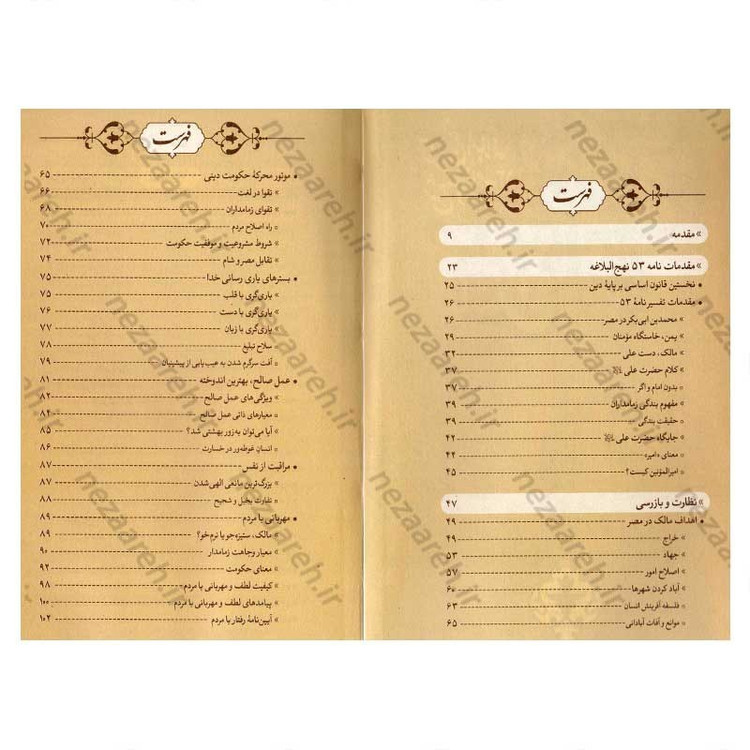 فهرست
» مقدمه ۹
» مقدمات نامه ۵۳ نهج‌البلاغه ۲۳
• نخستین قانون اساسی بر پایهٔ دین ۲۵
• مقدمات تفسیر نامهٔ ۵۳ ۲۶
» محمدبن ابی‌بکر در مصر ۲۶
» یمن، خاستگاه مؤمنان ۲۹
» مالک، دست علی ۳۲
» کلام حضرت علی ۳۷
▫ بدون امام و اگر ۳۷
» مفهوم بندگی زمامداران ۳۹
▫ حقیقت بندگی ۳۹
» جایگاه حضرت علی ۴۲
▫ معنای «امیر» ۴۲
▫ امیرالمؤنین کیست؟ ۴۵
» نظارت و بازرسی ۴۷
• اهداف مالک در مصر ۴۹
» خراج ۴۹
» جهاد ۵۳
» اصلاح امور ۵۷
» آباد کردن شهرها ۶۰
▫ فلسفه آفرینش انسان ۶۳
▫ موانع و آفات آبادانی ۶۵
فهرست
• موتور محرکهٔ حکومت دینی ۶۵
» تقوا در لغت ۶۶
» تقوای زمامداران ۶۸
▫ راه اصلاح مردم ۷۰
» شروط مشروعیت و موفقیت حکومت ۷۲
» تقابل مصر و شام ۷۴
• بسترهای یاری رسانی خدا ۷۵
» یاری‌گری با قلب ۷۵
» یاری‌گری با دست ۷۶
» یاری‌گری با زبان ۷۷
▫ سلاح تبلیغ ۷۸
▫ آفت سرگرم شدن به عیب‌یابی از پیشینیان ۷۹
• عمل صالح، بهترین اندوخته ۸۱
» ویژگی‌های عمل صالح ۸۲
▫ معیارهای ذاتی عمل صالح ۸۲
» آیا می‌توان به زور بهشتی شد؟ ۸۵
▫ انسانِ غوطه‌ور در خسارت ۸۶
• مراقبت از نفس ۸۷
» بزرگ‌ترین مانعی الهی‌شدن ۸۷
▫ تفاوت بخیل و شحیح ۸۸
• مهربانی با مردم ۸۹
» مالک، ستیزه‌جو یا نرم‌خو؟ ۸۹
» معیار وجاهت زمامدار ۹۰
» معنای حکومت ۹۲
» کیفیت لطف و مهربانی با مردم ۹۸
» پیامدهای لطف و مهربانی با مردم ۱۰۰
» آیین‌نامهٔ رفتار با مردم ۱۰۲
nezaareh.ir